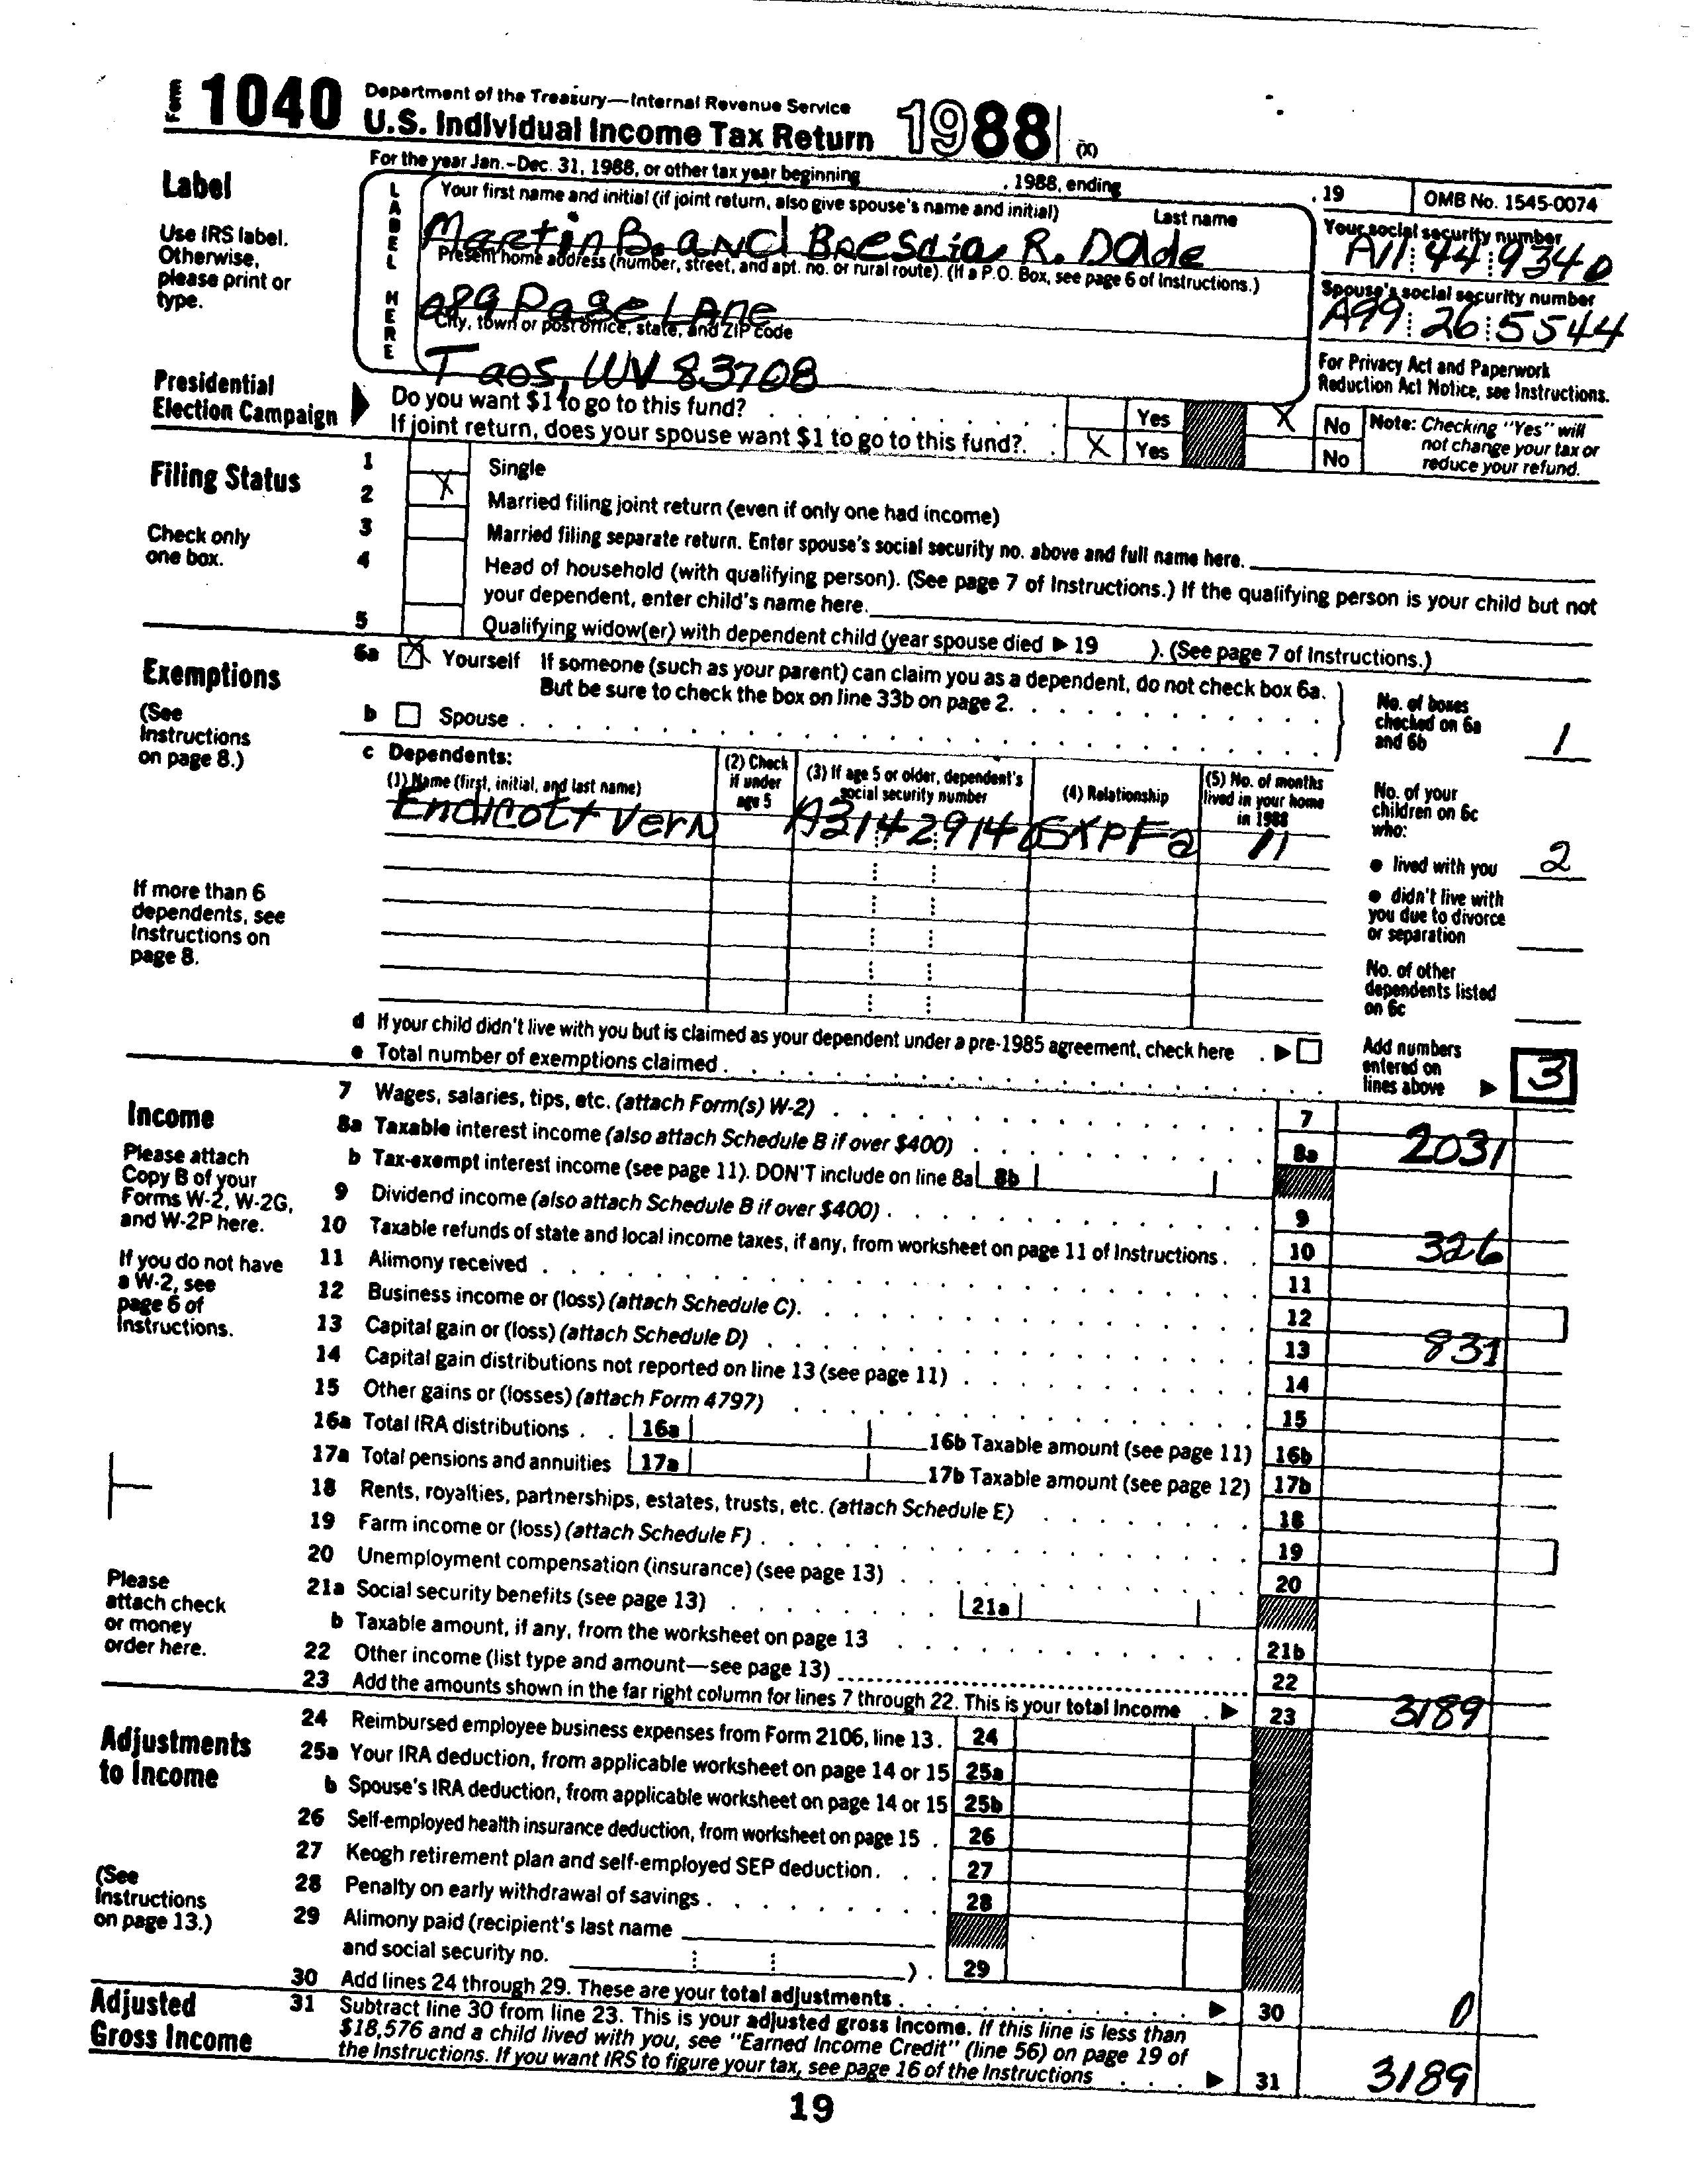 Form 1040 Department of the Treasury—Internal Revenue Service
U.S. Individual Income Tax Return 1988 (X)
For the year Jan.–Dec. 31, 1988, or other tax year beginning , 1988, ending , 19 OMB No. 1545-0074
Label
Use IRS label. Otherwise, please print or type.
LABEL HERE
Your first name and initial (if joint return, also give spouse's name and initial) Last name
Martin B. and Brescia R. Dade
Your social security number
A11 44 9340
Present home address (number, street, and apt. no. or rural route). (If a P.O. Box, see page 6 of Instructions.)
a89 Page Lane
Spouse's social security number
A99 26 5544
City, town or post office, state, and ZIP code
Taos, WV 83708
For Privacy Act and Paperwork Reduction Act Notice, see Instructions.
Presidential Election Campaign
Do you want $1 to go to this fund? Yes X No
If joint return, does your spouse want $1 to go to this fund? X Yes No
Note: Checking "Yes" will not change your tax or reduce your refund.
Filing Status
Check only one box.
1 Single
2 X Married filing joint return (even if only one had income)
3 Married filing separate return. Enter spouse's social security no. above and full name here.
4 Head of household (with qualifying person). (See page 7 of Instructions.) If the qualifying person is your child but not
your dependent, enter child's name here.
5 Qualifying widow(er) with dependent child (year spouse died ▶ 19 ). (See page 7 of Instructions.)
Exemptions
(See Instructions on page 8.)
6a X Yourself If someone (such as your parent) can claim you as a dependent, do not check box 6a.
But be sure to check the box on line 33b on page 2.
b Spouse
No. of boxes checked on 6a and 6b 1
c Dependents:
(1) Name (first, initial, and last name) (2) Check if under age 5 (3) If age 5 or older, dependent's social security number (4) Relationship (5) No. of months lived in your home in 1988
Endicott Vern 11
No. of your children on 6c who:
● lived with you 2
● didn't live with you due to divorce or separation
No. of other dependents listed on 6c
If more than 6 dependents, see Instructions on page 8.
d If your child didn't live with you but is claimed as your dependent under a pre-1985 agreement, check here ▶
e Total number of exemptions claimed
Add numbers entered on lines above ▶ 3
Income
Please attach Copy B of your Forms W-2, W-2G, and W-2P here.
If you do not have a W-2, see page 6 of Instructions.
Please attach check or money order here.
7 Wages, salaries, tips, etc. (attach Form(s) W-2) 7
8a Taxable interest income (also attach Schedule B if over $400) 8a 2031
b Tax-exempt interest income (see page 11). DON'T include on line 8a 8b
9 Dividend income (also attach Schedule B if over $400) 9
10 Taxable refunds of state and local income taxes, if any, from worksheet on page 11 of Instructions 10 326
11 Alimony received 11
12 Business income or (loss) (attach Schedule C) 12
13 Capital gain or (loss) (attach Schedule D) 13 831
14 Capital gain distributions not reported on line 13 (see page 11) 14
15 Other gains or (losses) (attach Form 4797) 15
16a Total IRA distributions 16a 16b Taxable amount (see page 11) 16b
17a Total pensions and annuities 17a 17b Taxable amount (see page 12) 17b
18 Rents, royalties, partnerships, estates, trusts, etc. (attach Schedule E) 18
19 Farm income or (loss) (attach Schedule F) 19
20 Unemployment compensation (insurance) (see page 13) 20
21a Social security benefits (see page 13) 21a
b Taxable amount, if any, from the worksheet on page 13 21b
22 Other income (list type and amount—see page 13) 22
23 Add the amounts shown in the far right column for lines 7 through 22. This is your total income ▶ 23 3189
Adjustments to Income
(See Instructions on page 13.)
24 Reimbursed employee business expenses from Form 2106, line 13. 24
25a Your IRA deduction, from applicable worksheet on page 14 or 15 25a
b Spouse's IRA deduction, from applicable worksheet on page 14 or 15 25b
26 Self-employed health insurance deduction, from worksheet on page 15 26
27 Keogh retirement plan and self-employed SEP deduction 27
28 Penalty on early withdrawal of savings 28
29 Alimony paid (recipient's last name
and social security no. ) 29
30 Add lines 24 through 29. These are your total adjustments ▶ 30 0
Adjusted Gross Income
31 Subtract line 30 from line 23. This is your adjusted gross income. If this line is less than
$18,576 and a child lived with you, see "Earned Income Credit" (line 56) on page 19 of
the Instructions. If you want IRS to figure your tax, see page 16 of the Instructions ▶ 31 3189
19